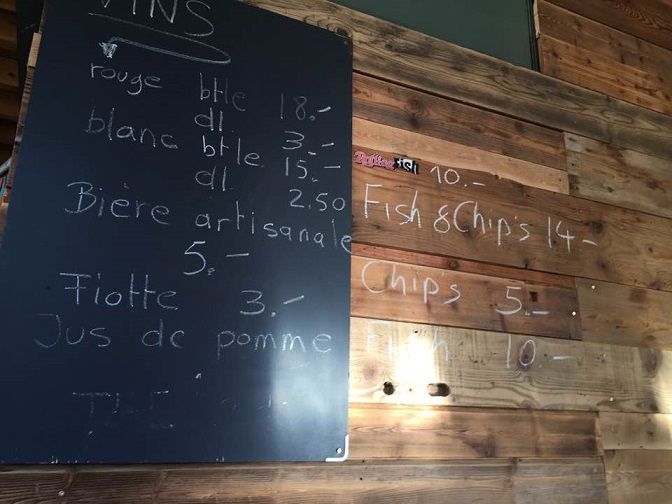 VINS
rouge btle 18.-
dl. 3.-
blanc btle 15.-
dl 2.50
Bière artisanale
5.-
Fiotte 3.-
Jus de pomme
Rolling Fish 10.-
Fish & Chip's 14-
Chip's 5.-
Fish 10.-